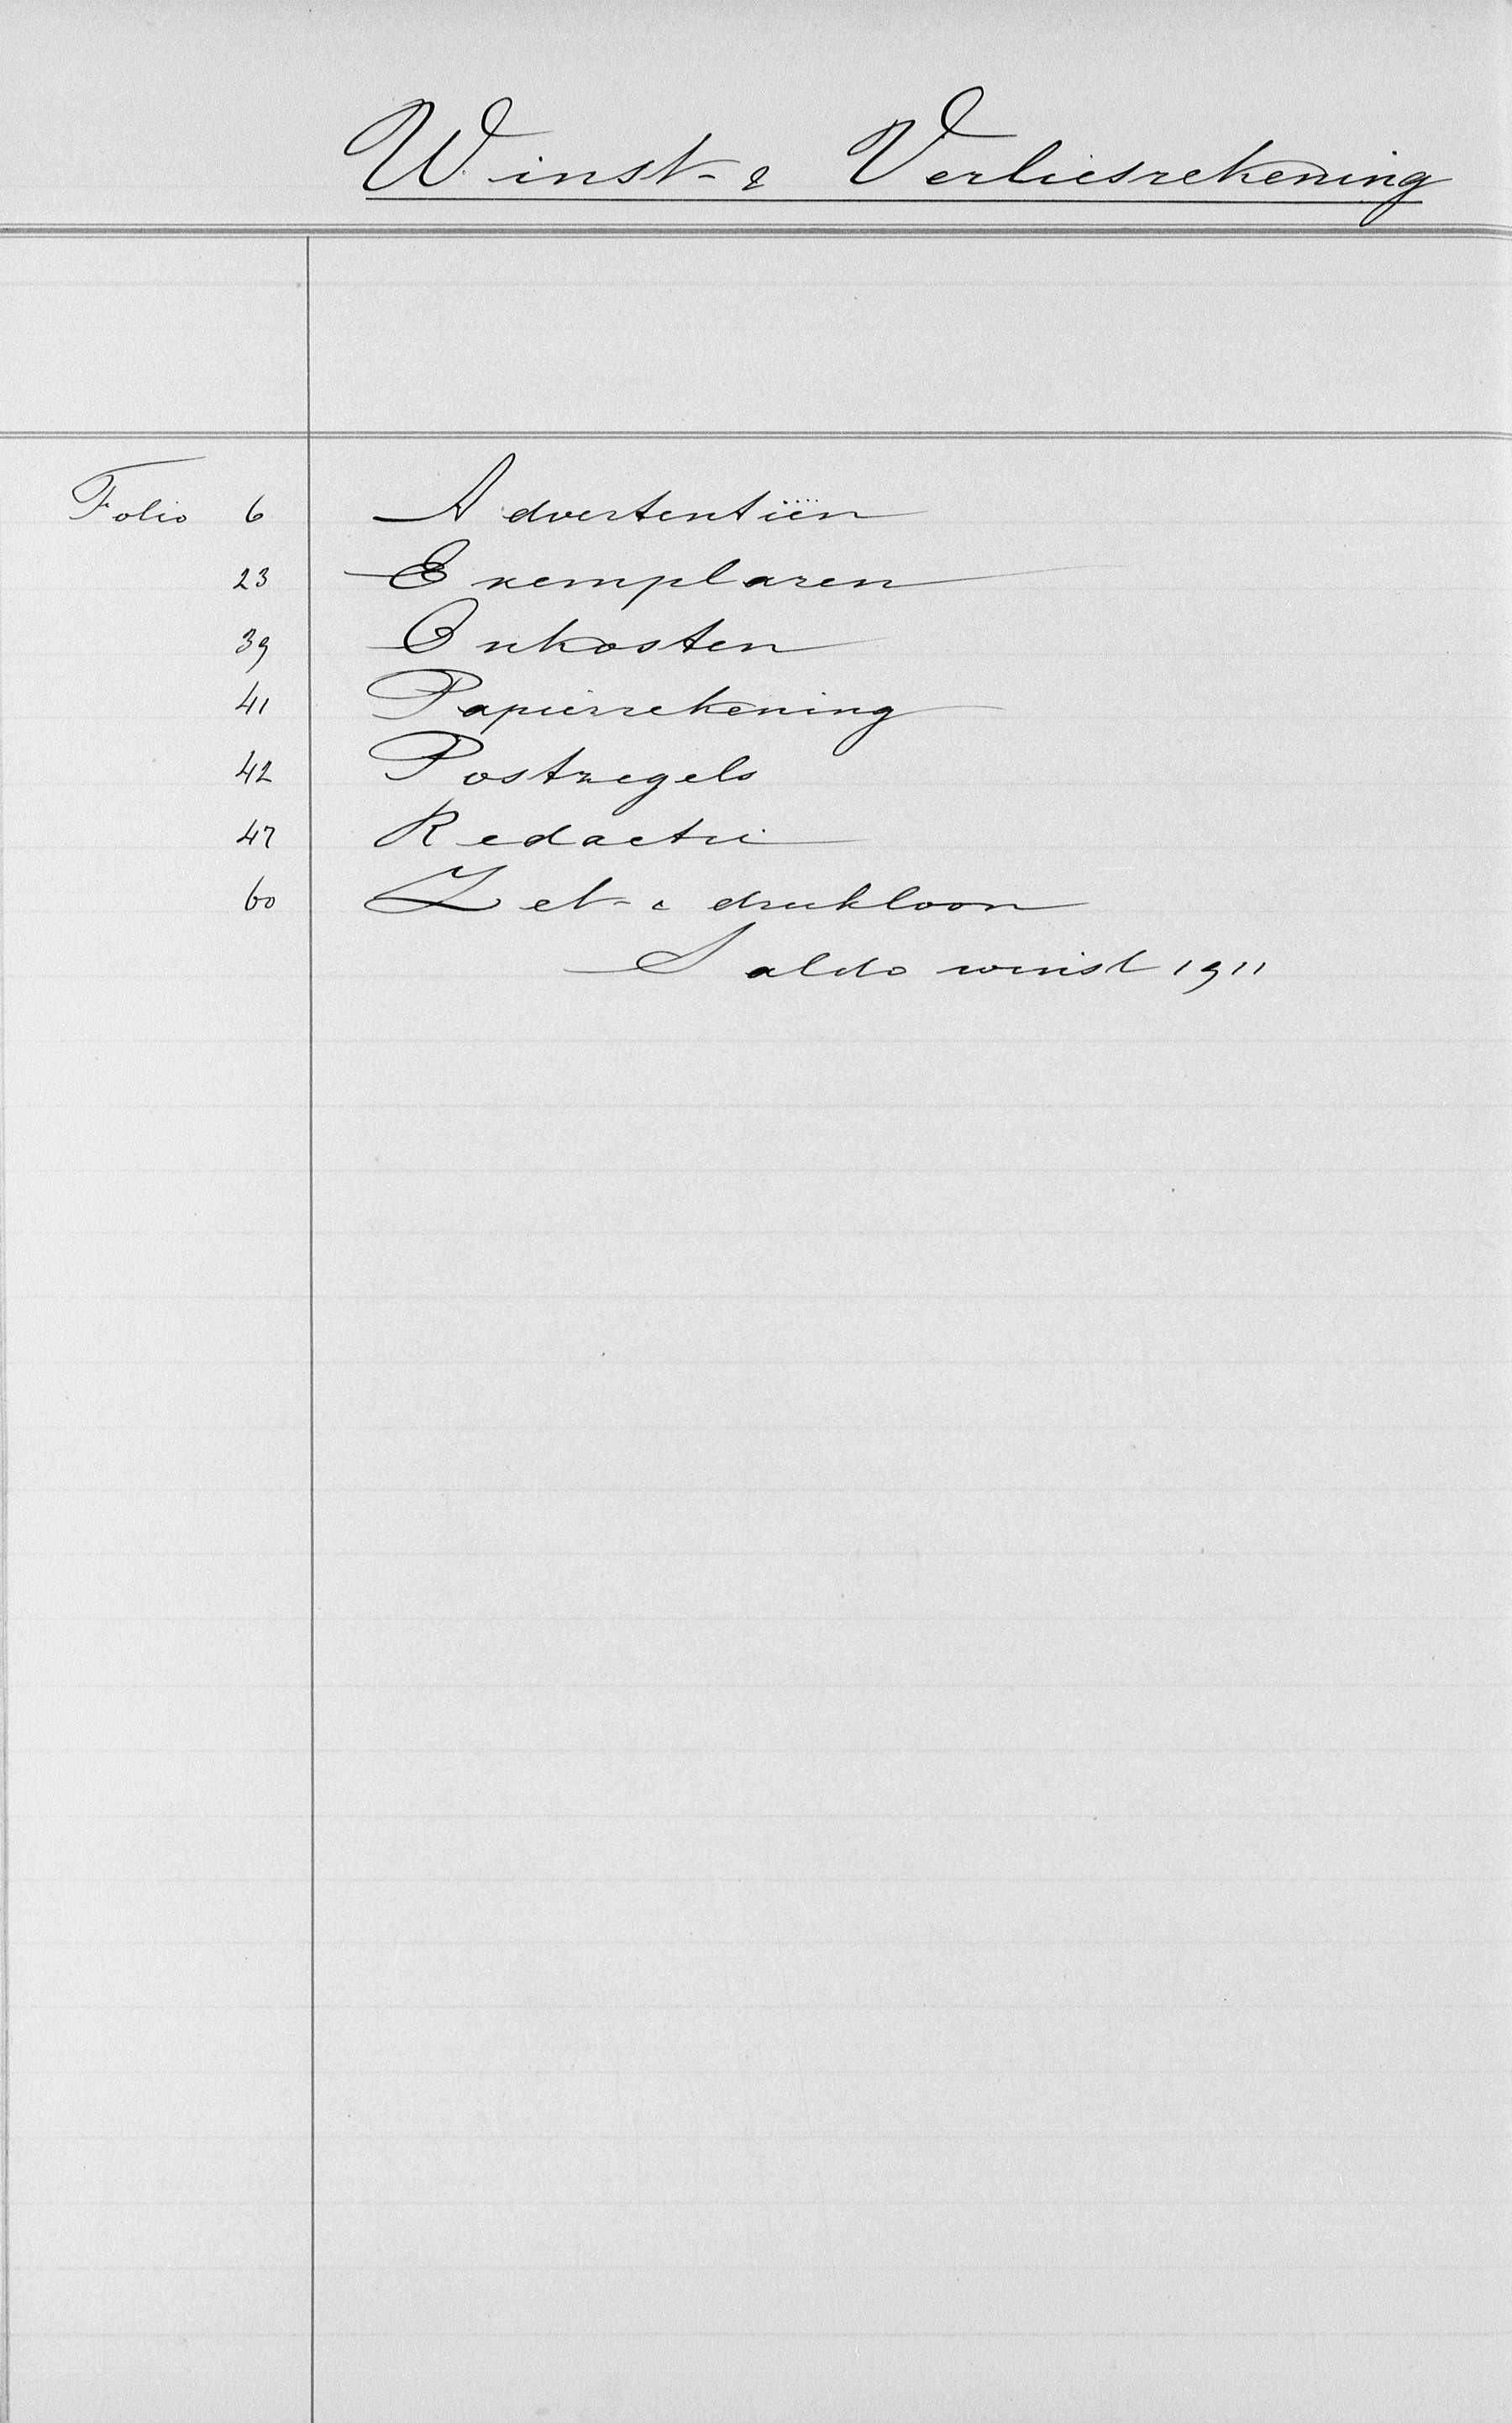 Winst- & Verliesrekening
Folio 6 Advertentiën
23 Exemplaren
39 Onkosten
41 Papierrekening
42 Postzegels
47 Redactie
60 Zet- & drukloon
Saldo winst 1911